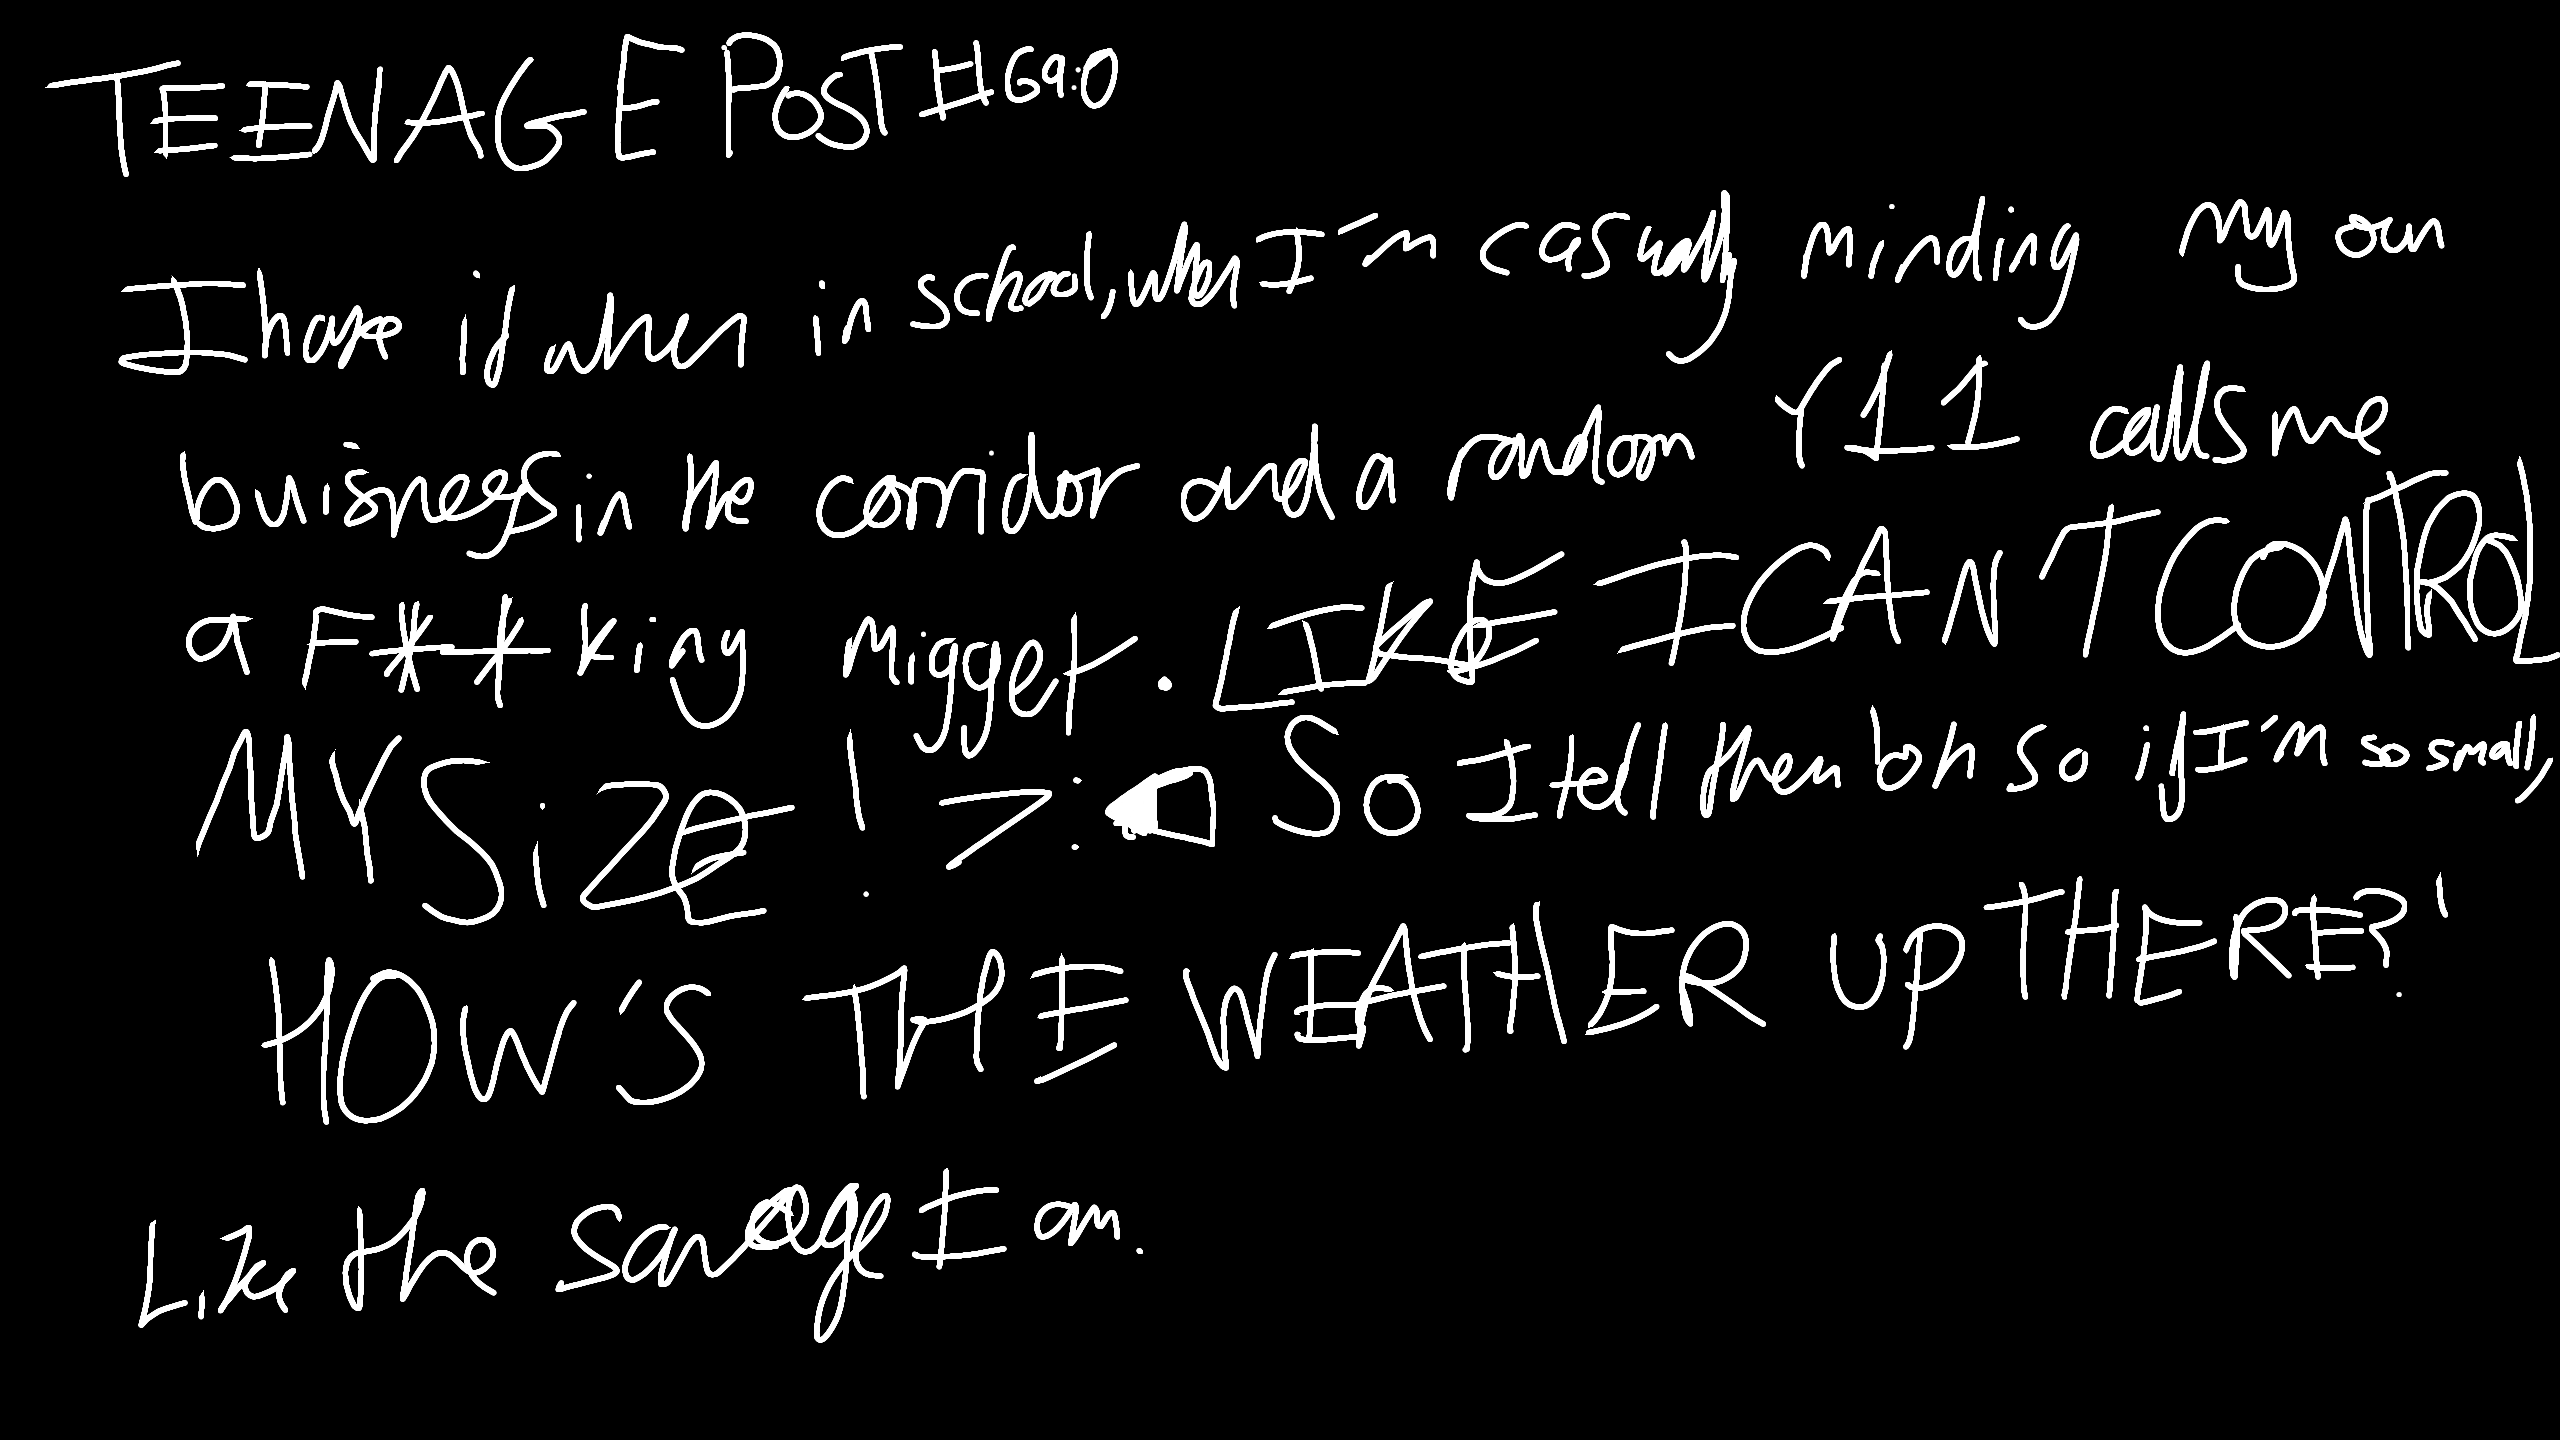 TEENAGE POST #69:0
I hate it when in school, when I'm casually minding my own
buisness in the corridor and a random Y11 calls me
a F**king migget. LIKE I CAN'T CONTROL
MY SiZE! >: So I tell them 'oh so if I'm so small,
HOW'S THE WEATHER UP THERE?'
Like the savage I am.